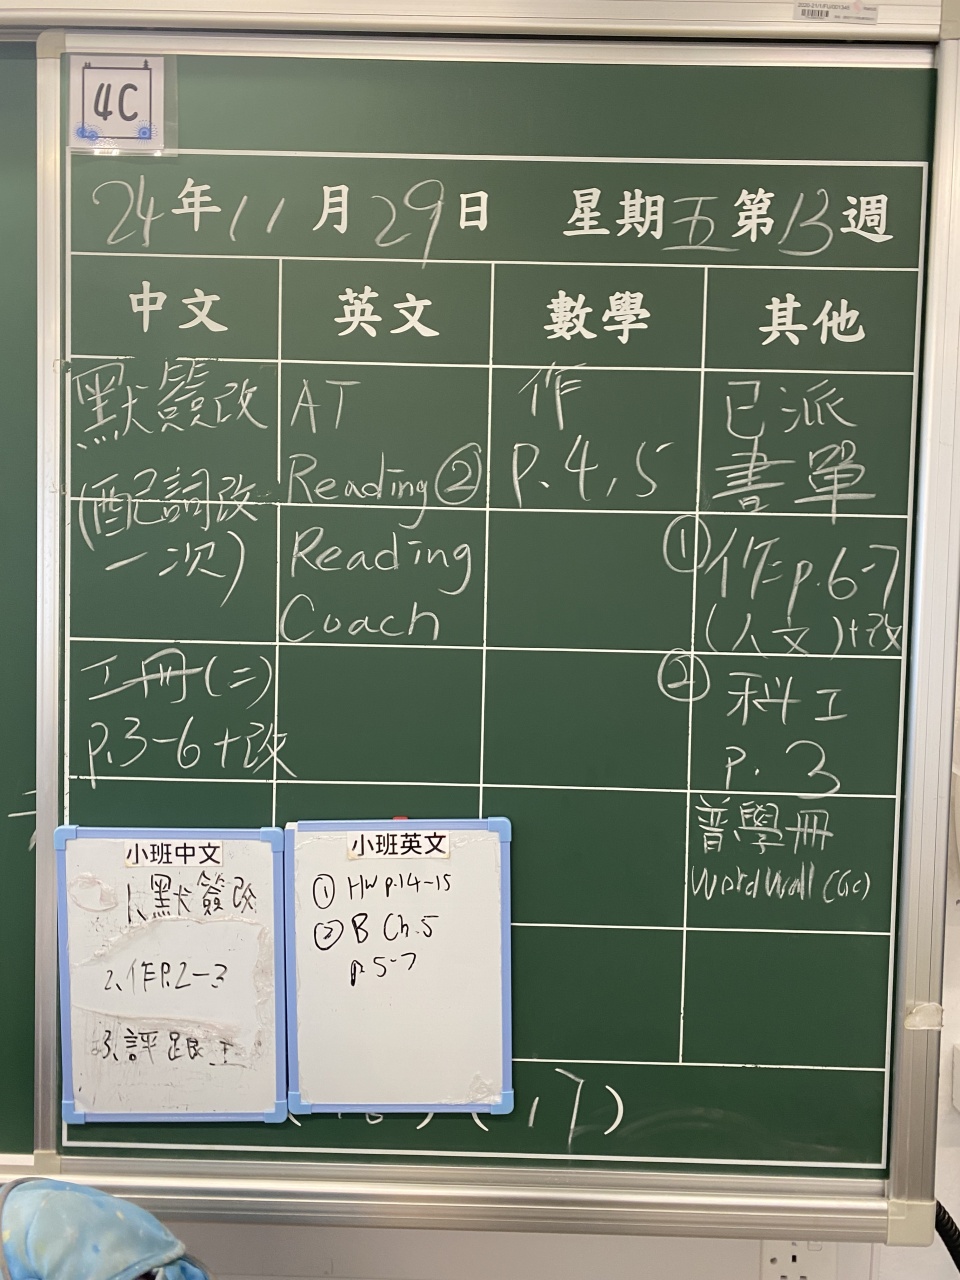 4C
24年11月29日 星期五第13週
中文
英文
數學
其他
默簽改
(配詞改
一次)
工冊(二)
p.3-6+改
AT
Reading②
Reading
Coach
作
P.4,5
已派
書單
①作p.6-7
(人文)+改
②科工
p.3
普學冊
Word Wall (6c)
小班中文
1、默簽改
2、作P.2-3
3、評跟工
小班英文
① HW p.14-15
② B Ch.5
p.5-7
) ( 17 )